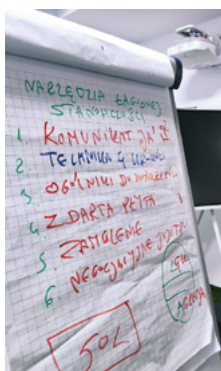 NARZĘDZIA ŁAGODNEJ
STANOWCZOŚCI
1. KOMUNIKAT "JA"
2. TECHNIKA 4 KROKÓW
3. OGÓLNIKI DO
4. ZDARTA PŁYTA
5. ZAMGLENIE
6. NEGOCJACYJNE
LĘK
AGRESJA
SOL